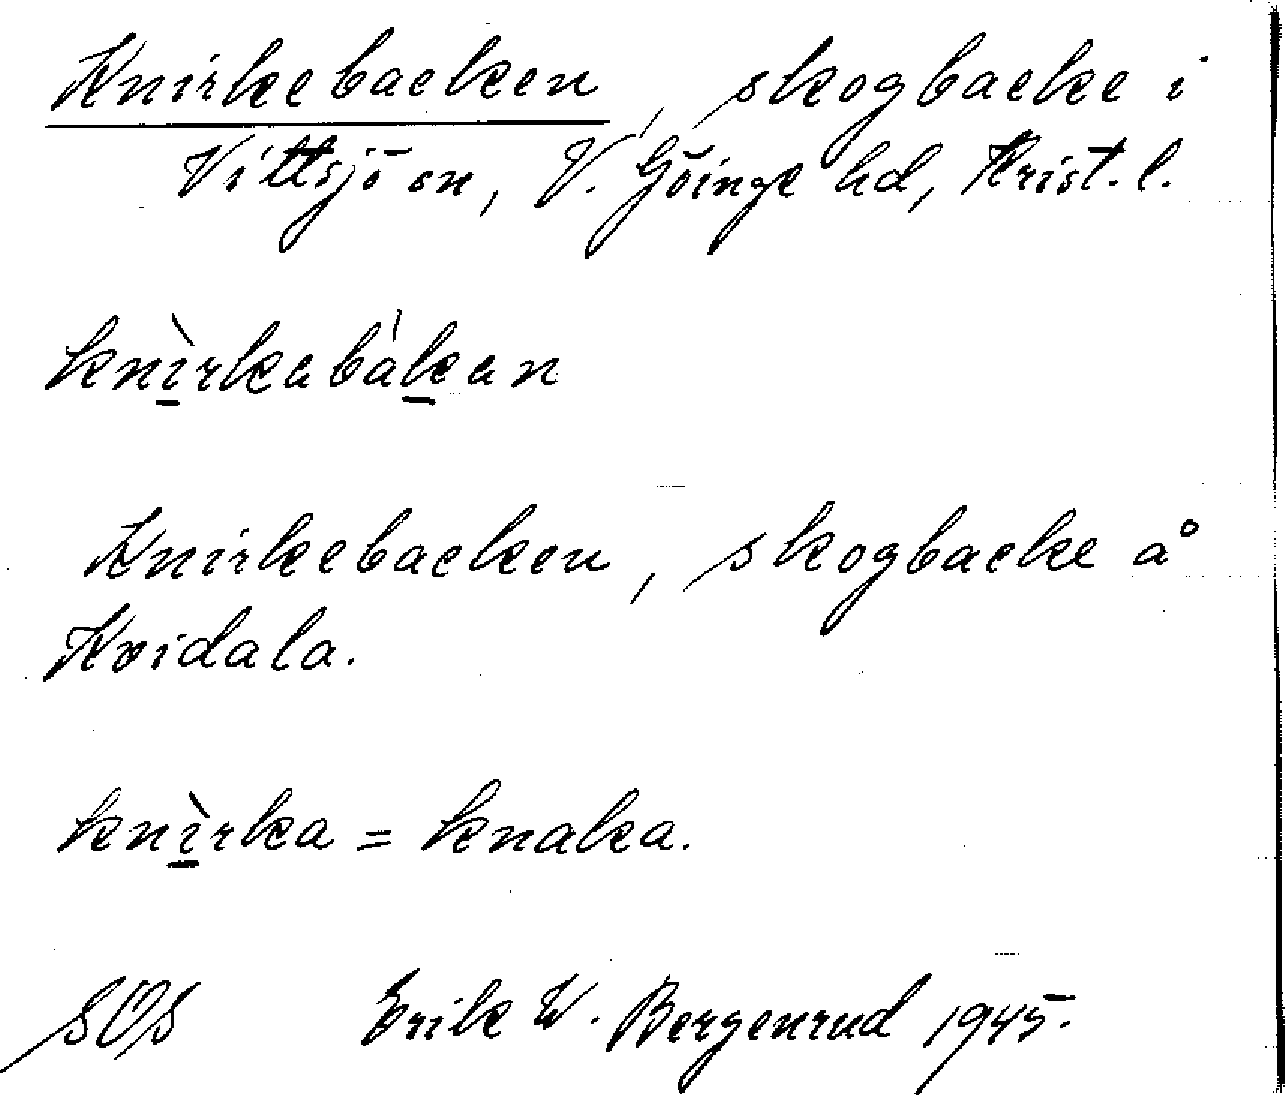 Knirkebacken, skogbacke i
Vittsjö sn, V. Göinge hd, Krist. l.
knìrkabákan
Knirkebacken, skogbacke å
Kvidala.
knìrka = knaka.
SOS Erik W. Bergenrud 1945.